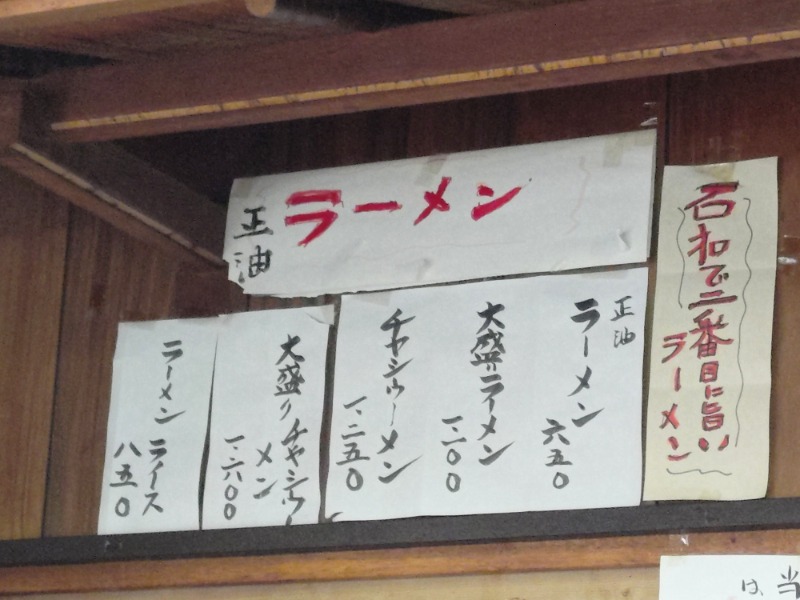 正油
ラーメン
石和で二番目に旨い
ラーメン
正油
ラーメン
六五〇
大盛りラーメン
チャシューメン
一、二五〇
大盛りチャシュー
メン
一、六〇〇
ラーメン ライス
八五〇
は、当